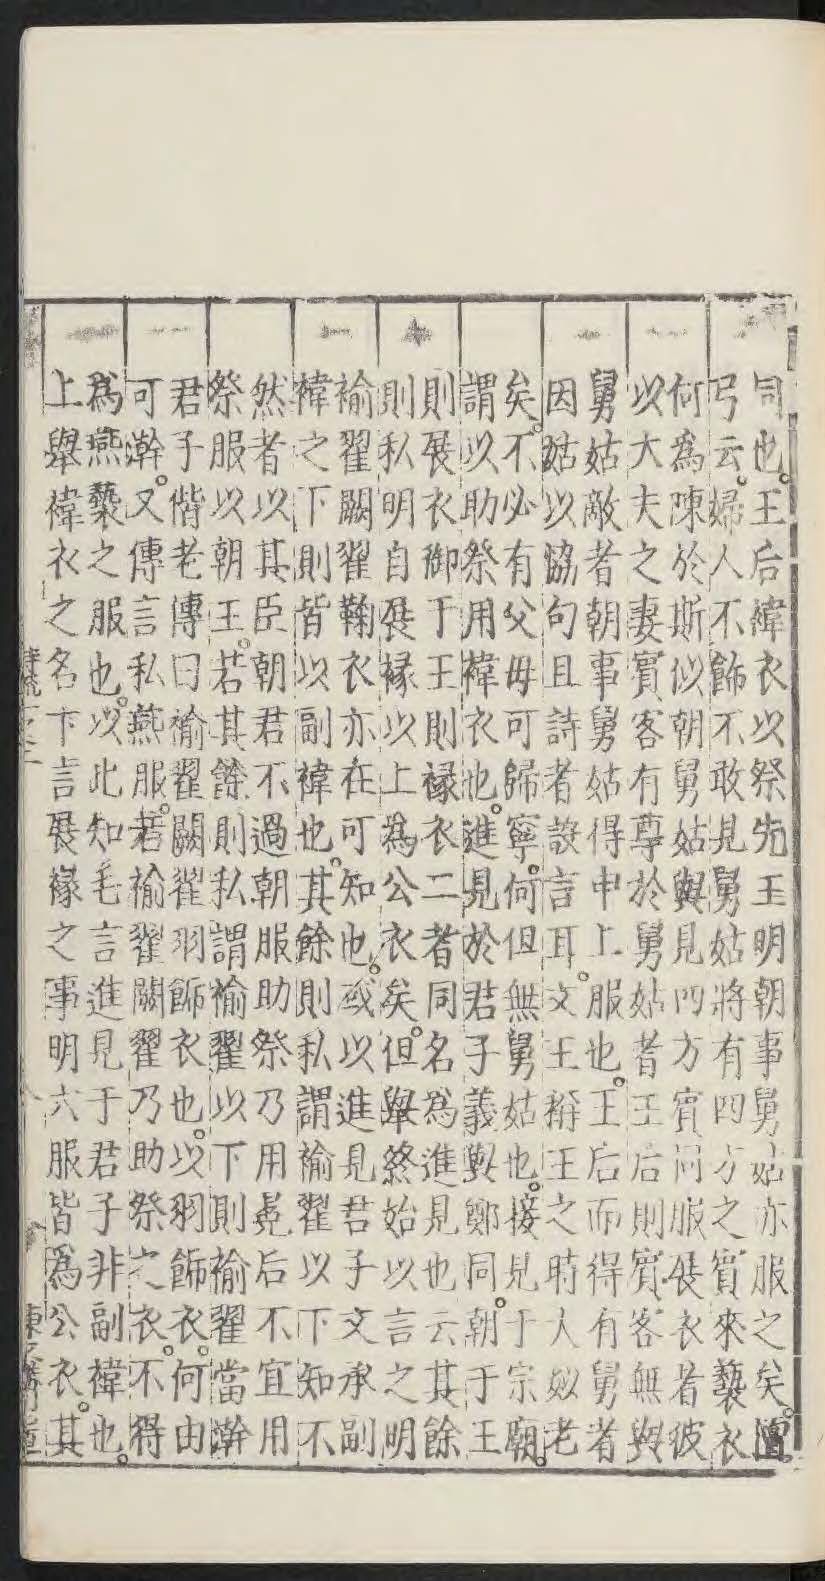 同也王后褘衣以祭先王明朝事舅姑亦服之矣檀
弓云婦人不飾不敢見舅姑將有四方之賓來褻衣
何為陳於斯似朝舅姑與見四方賓同服展衣者彼
以大夫之妻賓客有尊於舅姑者王后則賓客無與
舅姑敵者朝事舅姑得申上服也王后而得有舅者
因姑以協句且詩者設言耳文王稱王之時人姒老
矣不必有父母可歸寧何但無舅姑也接見于宗廟
謂以助祭用褘衣也進見於君子義與鄭同朝于王
則展衣御于王則褖衣二者同名為進見也云其餘
則私明自展褖以上為公衣矣但舉終始以言之明
褕翟闕翟鞠衣亦在可知也或以進見君子文承副
褘之下則皆以副褘也其餘則私謂褕翟以下知不
然者以其臣朝君不過朝服助祭乃用冕后不宜用
祭服以朝王若其餘則私謂褕翟以下則褕翟當澣
君子偕老傳曰褕翟闕翟羽飾衣也以羽飾衣何由
可澣又傳言私燕服若褕翟闕翟乃助祭之衣不得
為燕褻之服也以此知毛言進見于君子非副褘也
上舉褘衣之名下言展褖之事明六服皆為公衣其